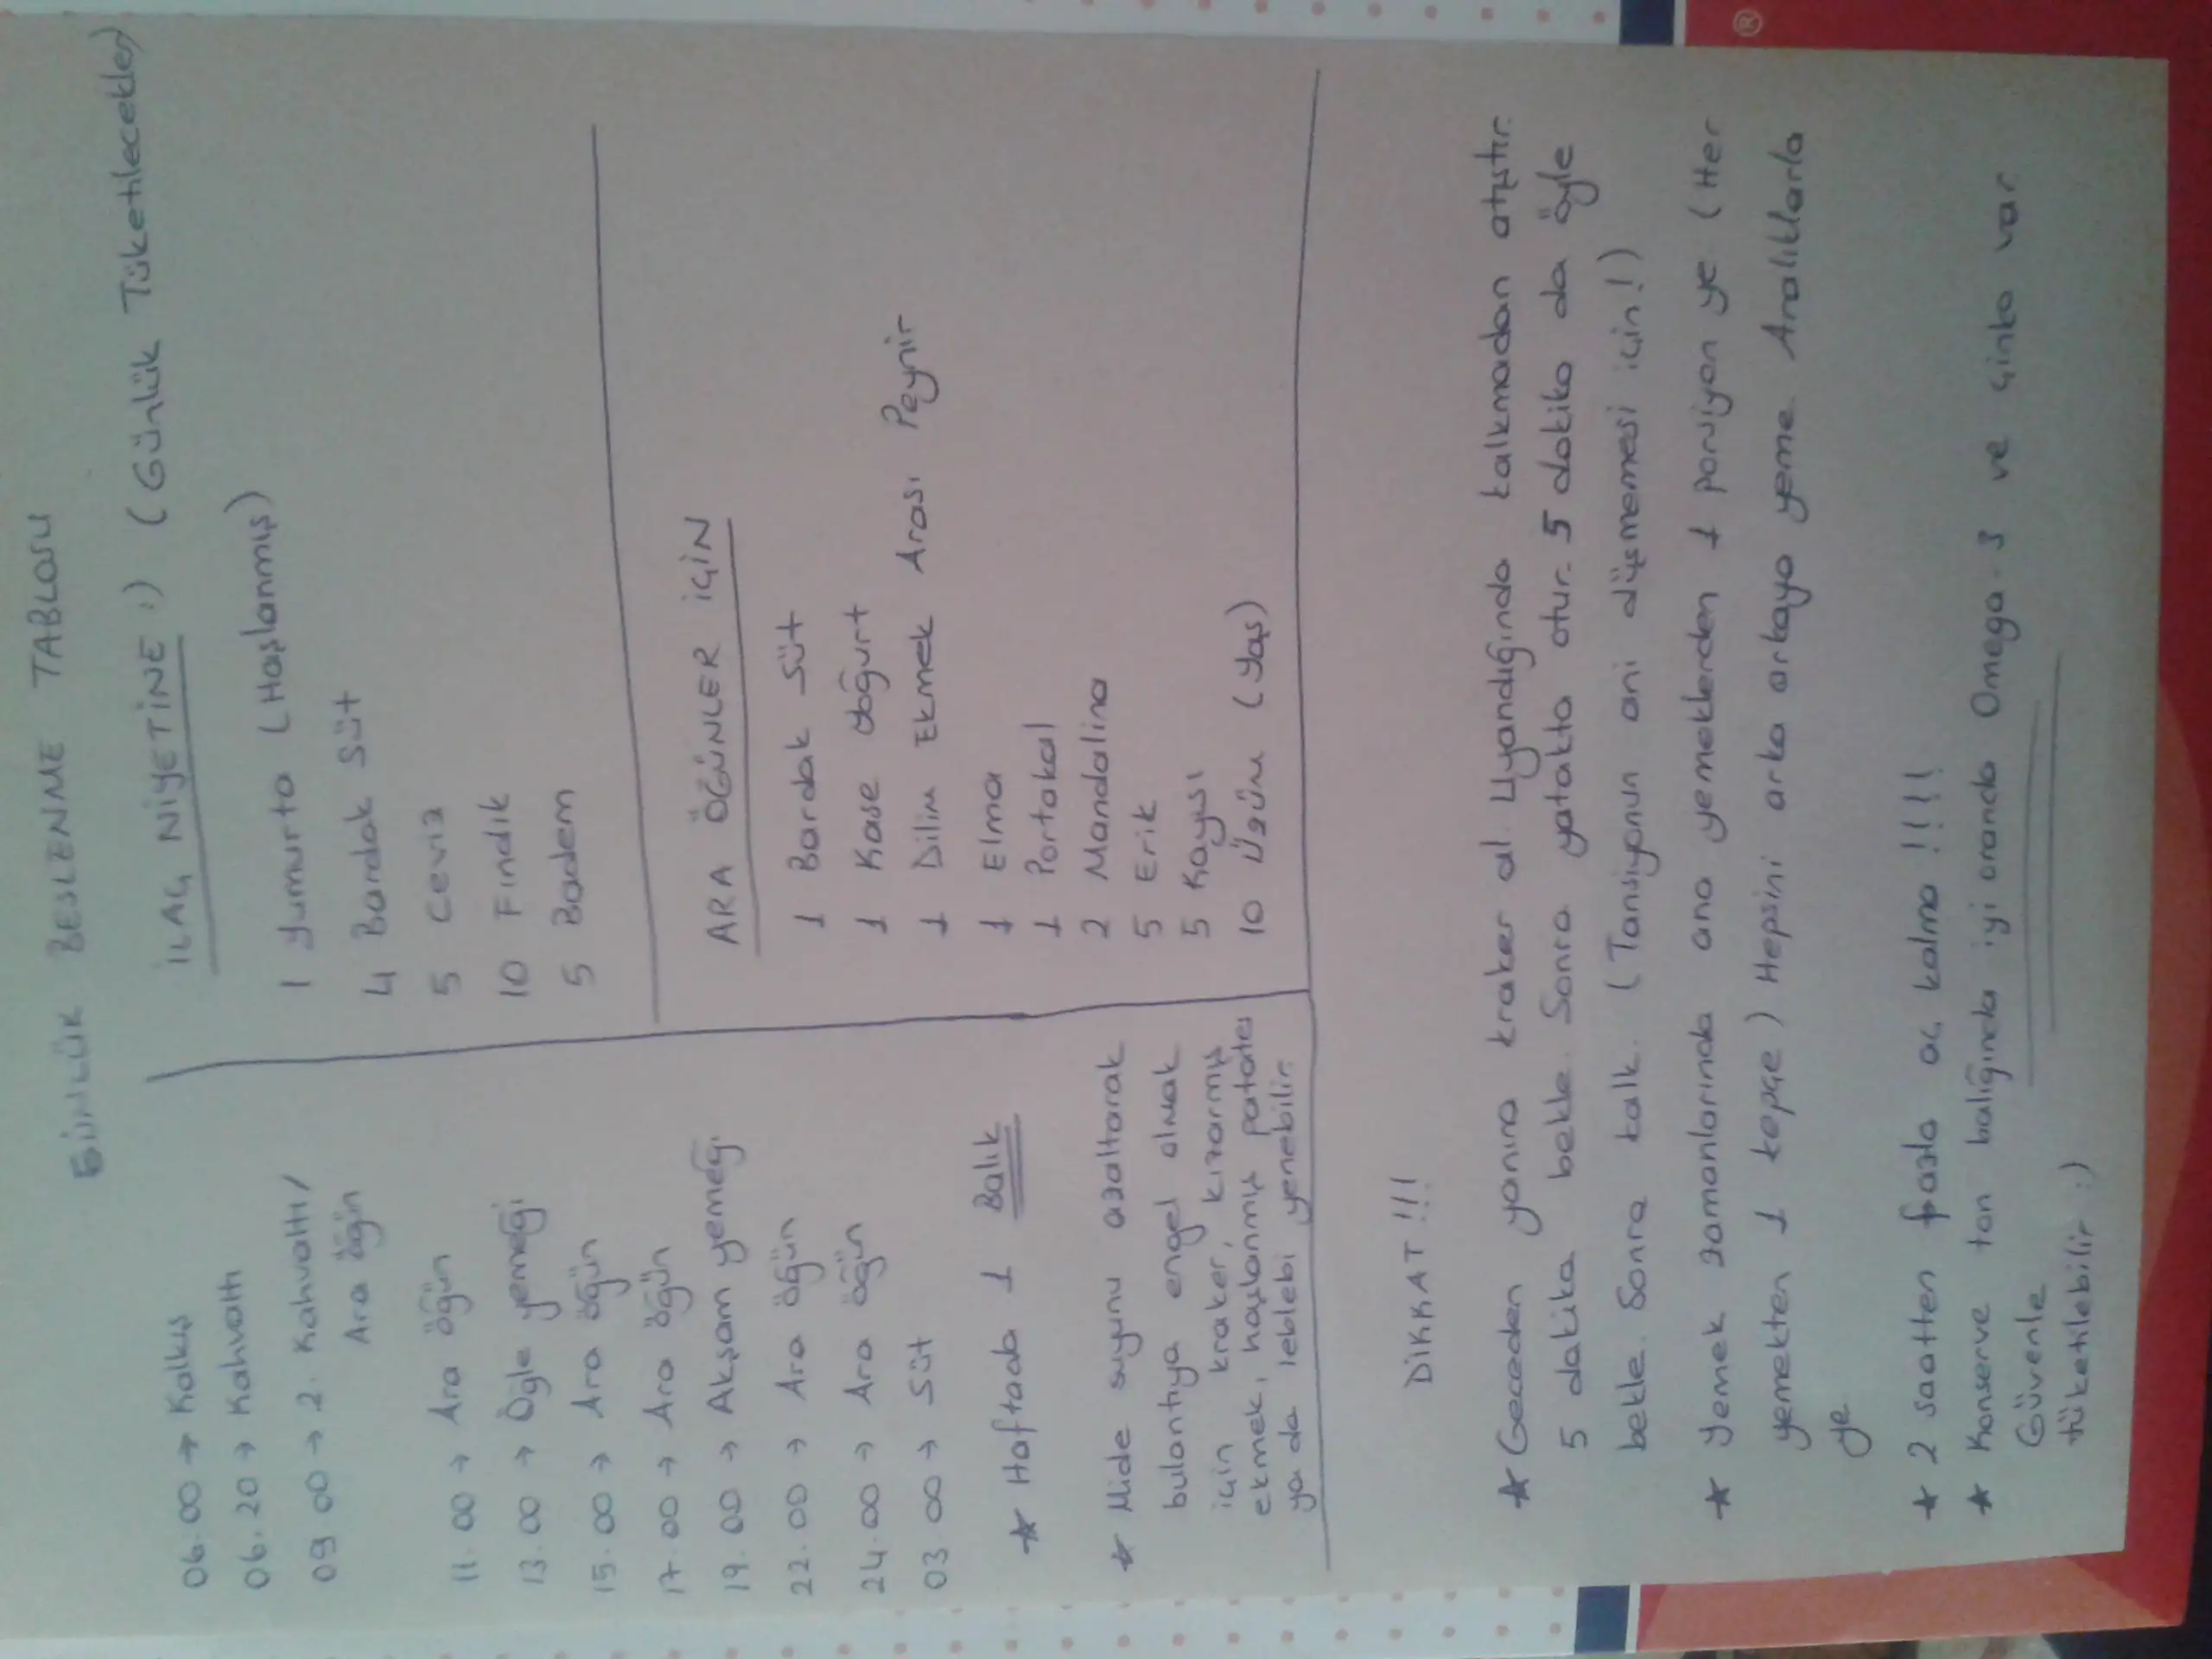 GÜNLÜK BESLENME TABLOSU
06.00 → Kalkış
06.20 → Kahvaltı
09 00 → 2. Kahvaltı/
Ara öğün
11.00 → Ara öğün
13.00 → Öğle yemeği
15.00 → Ara öğün
17.00 → Ara öğün
19.00 → Akşam yemeği
22.00 → Ara öğün
24.00 → Ara öğün
03.00 → Süt
★ Haftada 1 Balık
★ Mide suyunu azaltarak
bulantıya engel olmak
için kraker, kızarmış
ekmek, haşlanmış patates
ya da leblebi yenebilir.
İLAÇ NİYETİNE :) (Günlük Tüketilecekler)
1 Yumurta (Haşlanmış)
4 Bardak Süt
5 Ceviz
10 Fındık
5 Badem
ARA ÖĞÜNLER İÇİN
1 Bardak Süt
1 Kase Yoğurt
1 Dilim Ekmek Arası Peynir
1 Elma
1 Portakal
2 Mandalina
5 Erik
5 Kayısı
10 Üzüm (Yaş)
DİKKAT!!!
★ Geceden yanına kraker al. Uyandığında kalkmadan atıştır.
5 dakika bekle. Sonra yatakta otur. 5 dakika da öyle
bekle. Sonra kalk. (Tansiyonun ani düşmemesi için!)
★ Yemek zamanlarında ana yemeklerden 1 porsiyon ye (Her
yemekten 1 kepçe) Hepsini arka arkaya yeme. Aralıklarla
ye
★ 2 saatten fazla aç kalma !!!!!
★ Konserve ton balığında iyi oranda Omega-3 ve çinko var
Güvenle
tüketilebilir :)
®